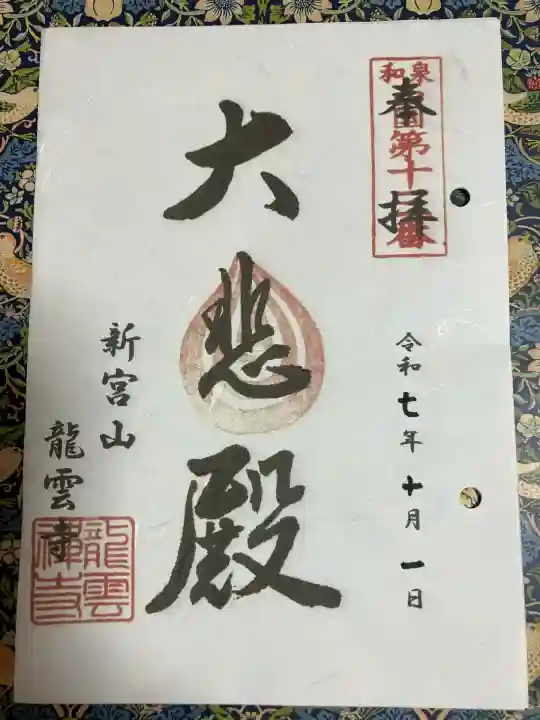 奉拝
和泉
第十
番
令和七年十月一日
大悲殿
新宮山
龍雲寺
龍雲
禅寺